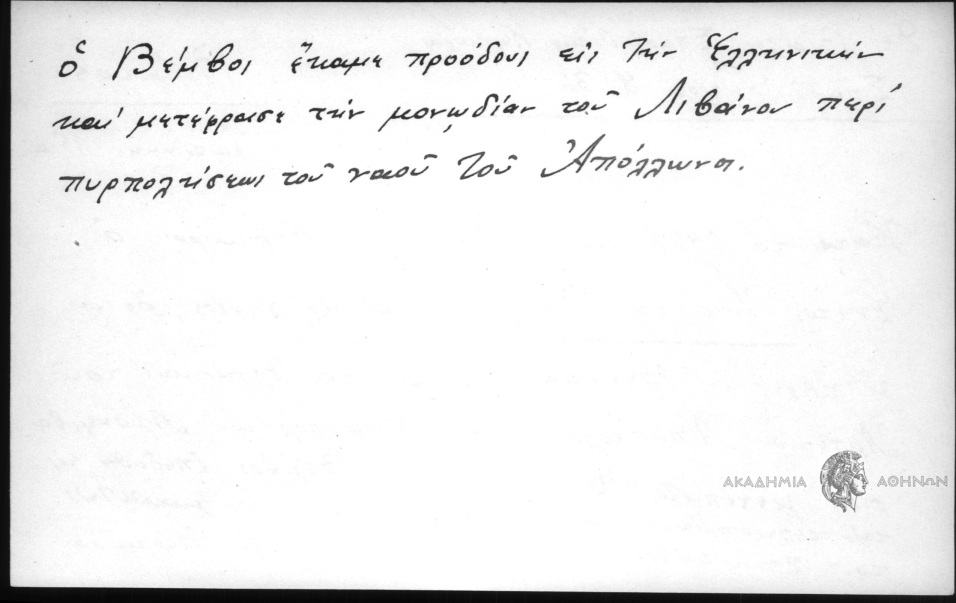 ὁ Βέμβος ἔκαμε προόδους εἰς τὴν Ἑλληνικήν
καί μετέφρασε τὴν μονῳδίαν τοῦ Λιβάνου περί
πυρπολήσεως τοῦ ναοῦ τοῦ Ἀπόλλωνος.
ΑΚΑΔΗΜΙΑ ΑΘΗΝΩΝ